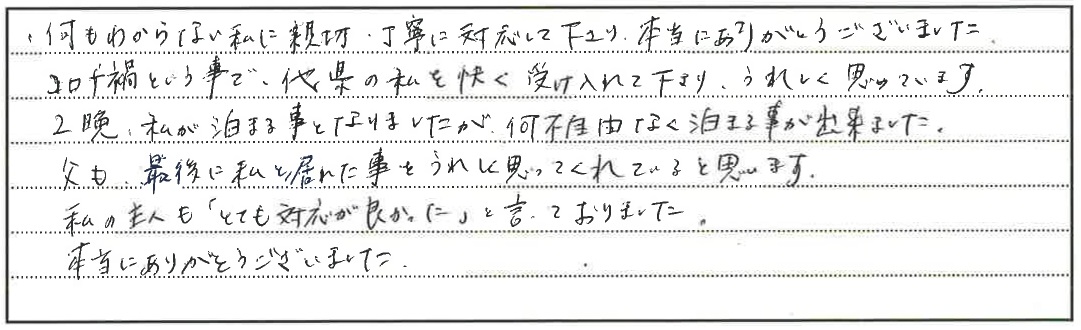 ・何もわからない私に親切・丁寧に対応して下さり、本当にありがとうございました。
コロナ禍という事で、他県の私を快く受け入れて下さり、うれしく思っています。
2晩、私が泊まる事となりましたが、何不自由なく泊まる事が出来ました。
父も、最後に私と居れた事をうれしく思ってくれていると思います。
私の主人も「とても対応が良かった」と言っておりました。
本当にありがとうございました。